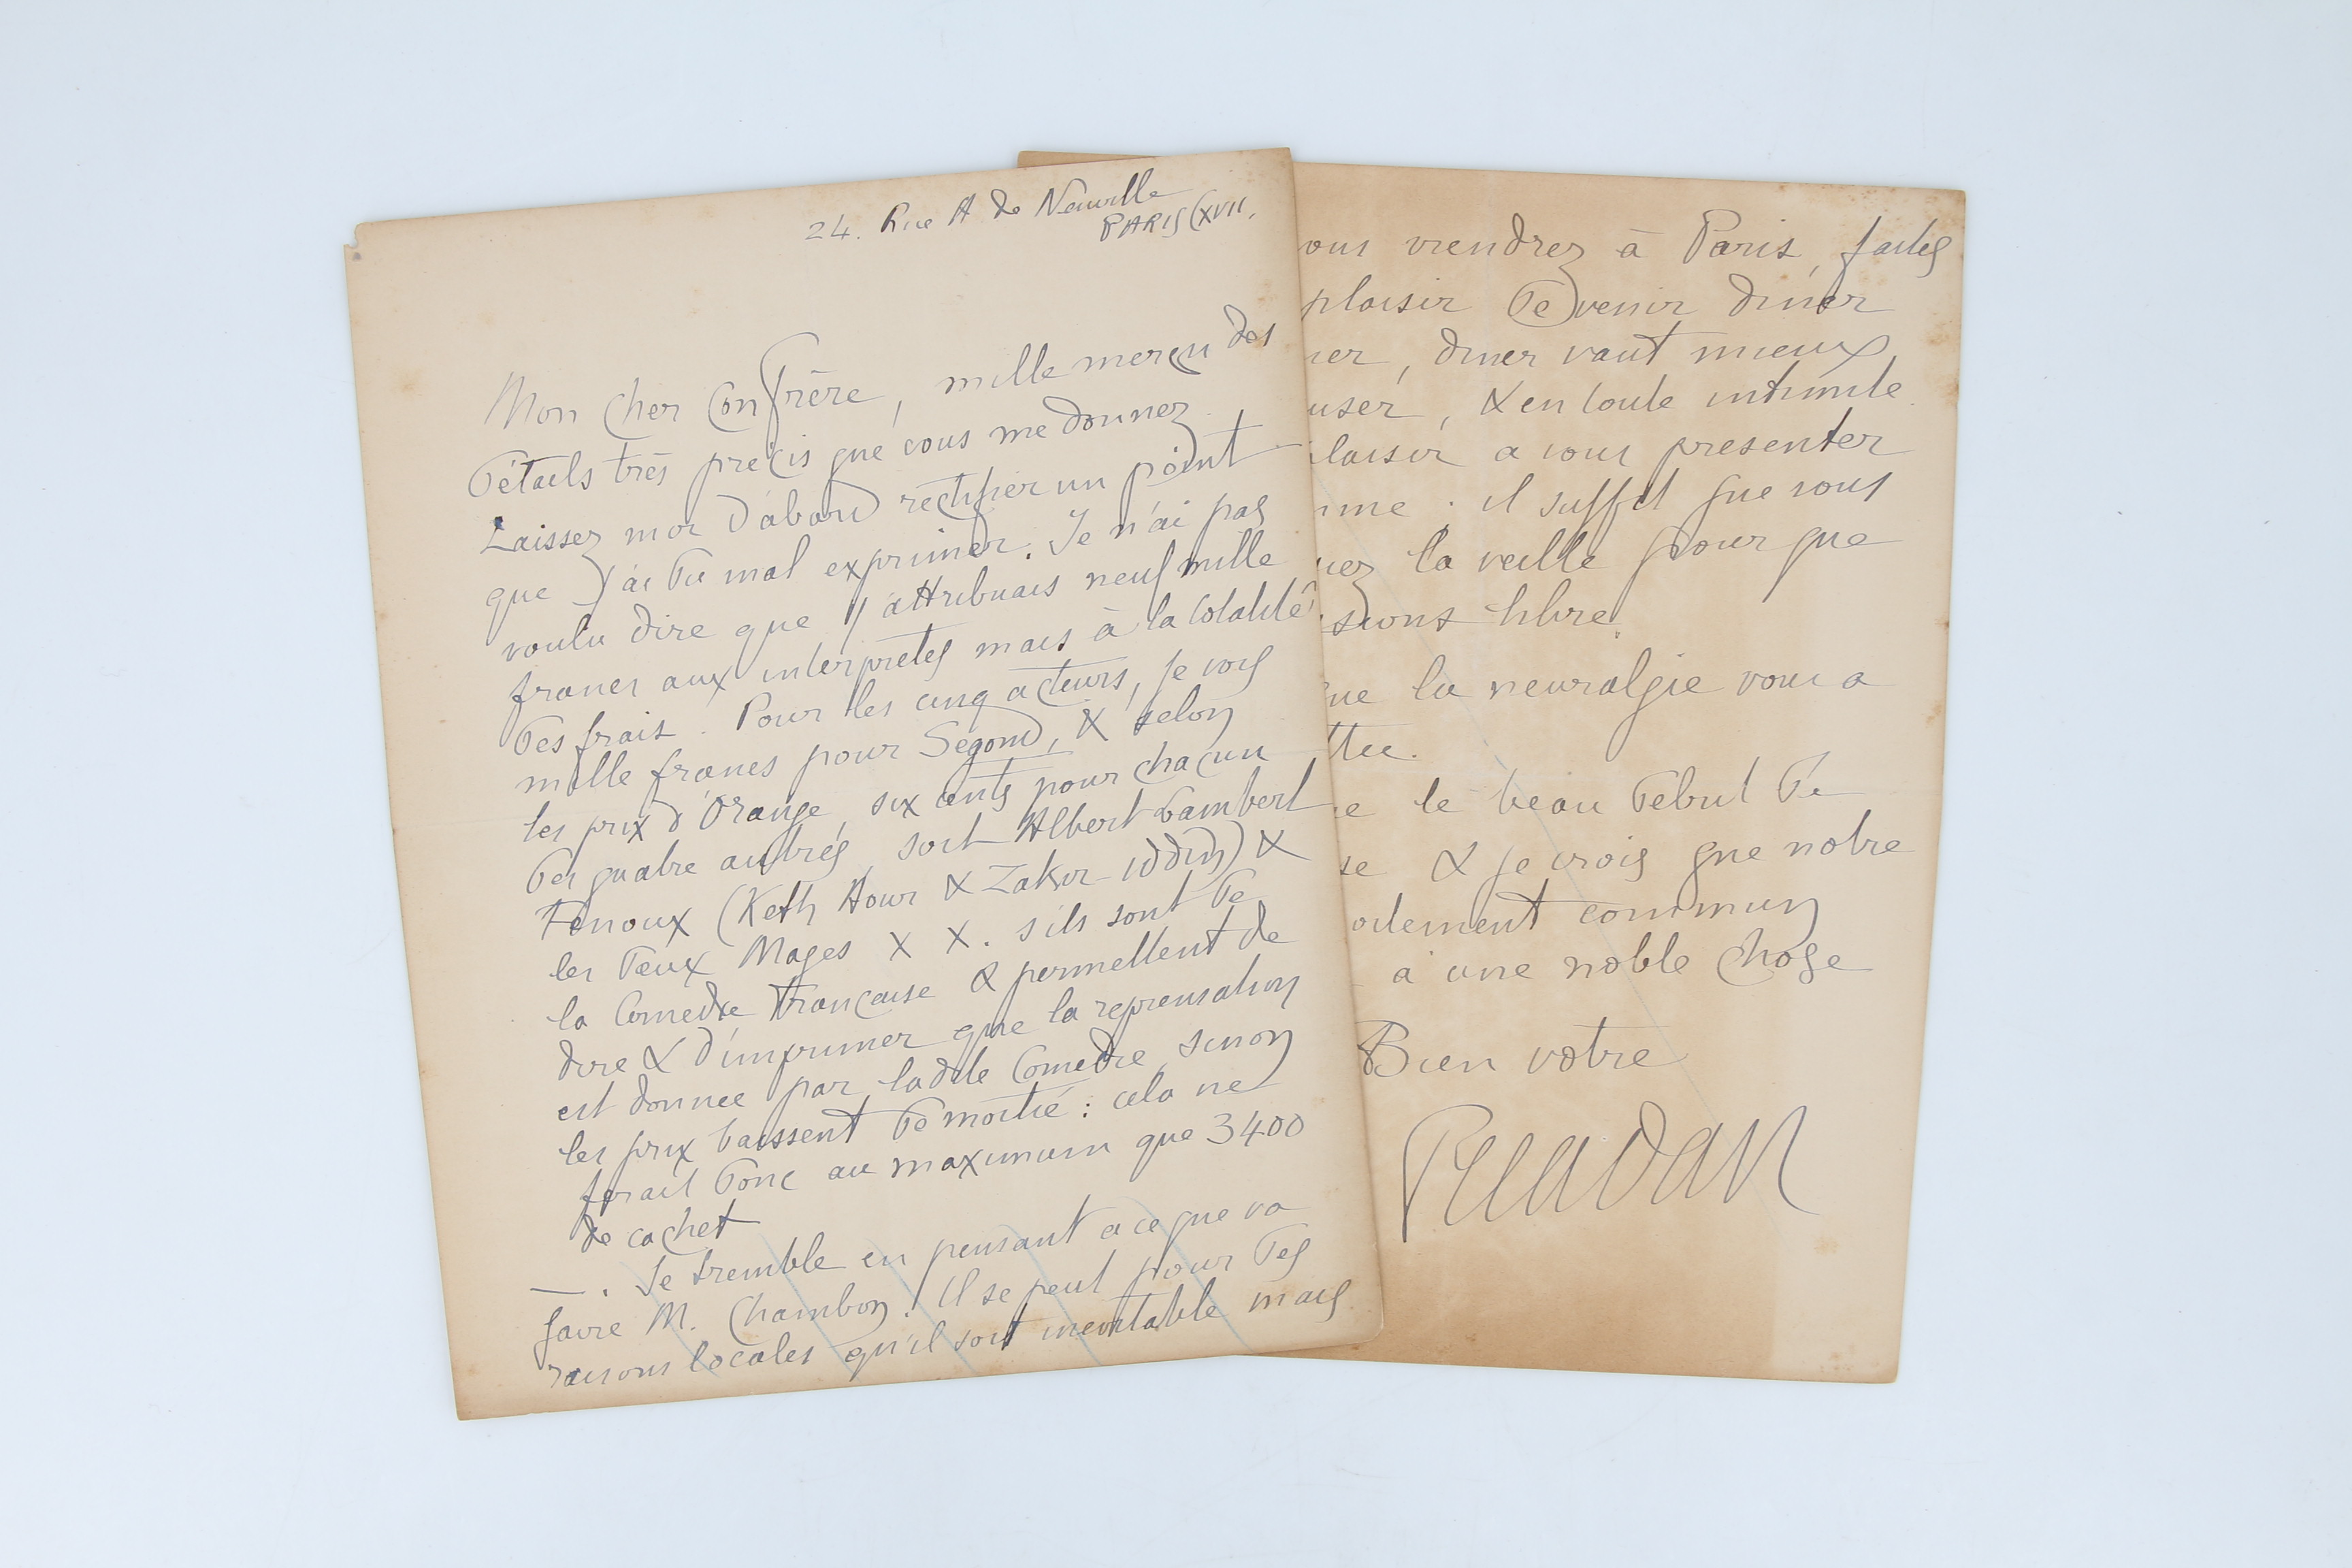 24. Rue A de Neuville
PARIS (XVII.
Mon cher confrère, mille merci des
détails très précis que vous me donnez.
Laissez moi d'abord rectifier un point
que j'ai du mal exprimer. Je n'ai pas
voulu dire que j'attribuais neuf mille
francs aux interpretes mais à la totalité
des frais. Pour les cinq acteurs, je vois
mille francs pour Segond, & selon
les prix d'Orange, six cents pour chacun
des quatre autres, soit Albert Lambert
Fenoux (Keth Hour & Zakir-iddin) &
les deux Mages X X. s'ils sont de
la Comedie Française & permettent de
dire & d'imprimer que la reprensation
est donnee par ladite Comedie, sinon
les prix baissent de moitié : cela ne
ferait donc au maximum que 3400
de cachet
— . Je tremble en pensant a ce que va
faire M. Chambon. Il se peut pour des
raisons locales qu'il soit inevitable mais
ous viendrez à Paris, faites
plaisir de venir diner
ner, diner vaut mieux
user, & en toute intimite.
laisir a vous presenter
mme . il suffit que vous
iez la veille pour que
sions libre.
ue la neuralgie vous a
ttee.
e le beau debut de
se & je crois que notre
oitement commun
a une noble chose
Bien vôtre
PELADAN